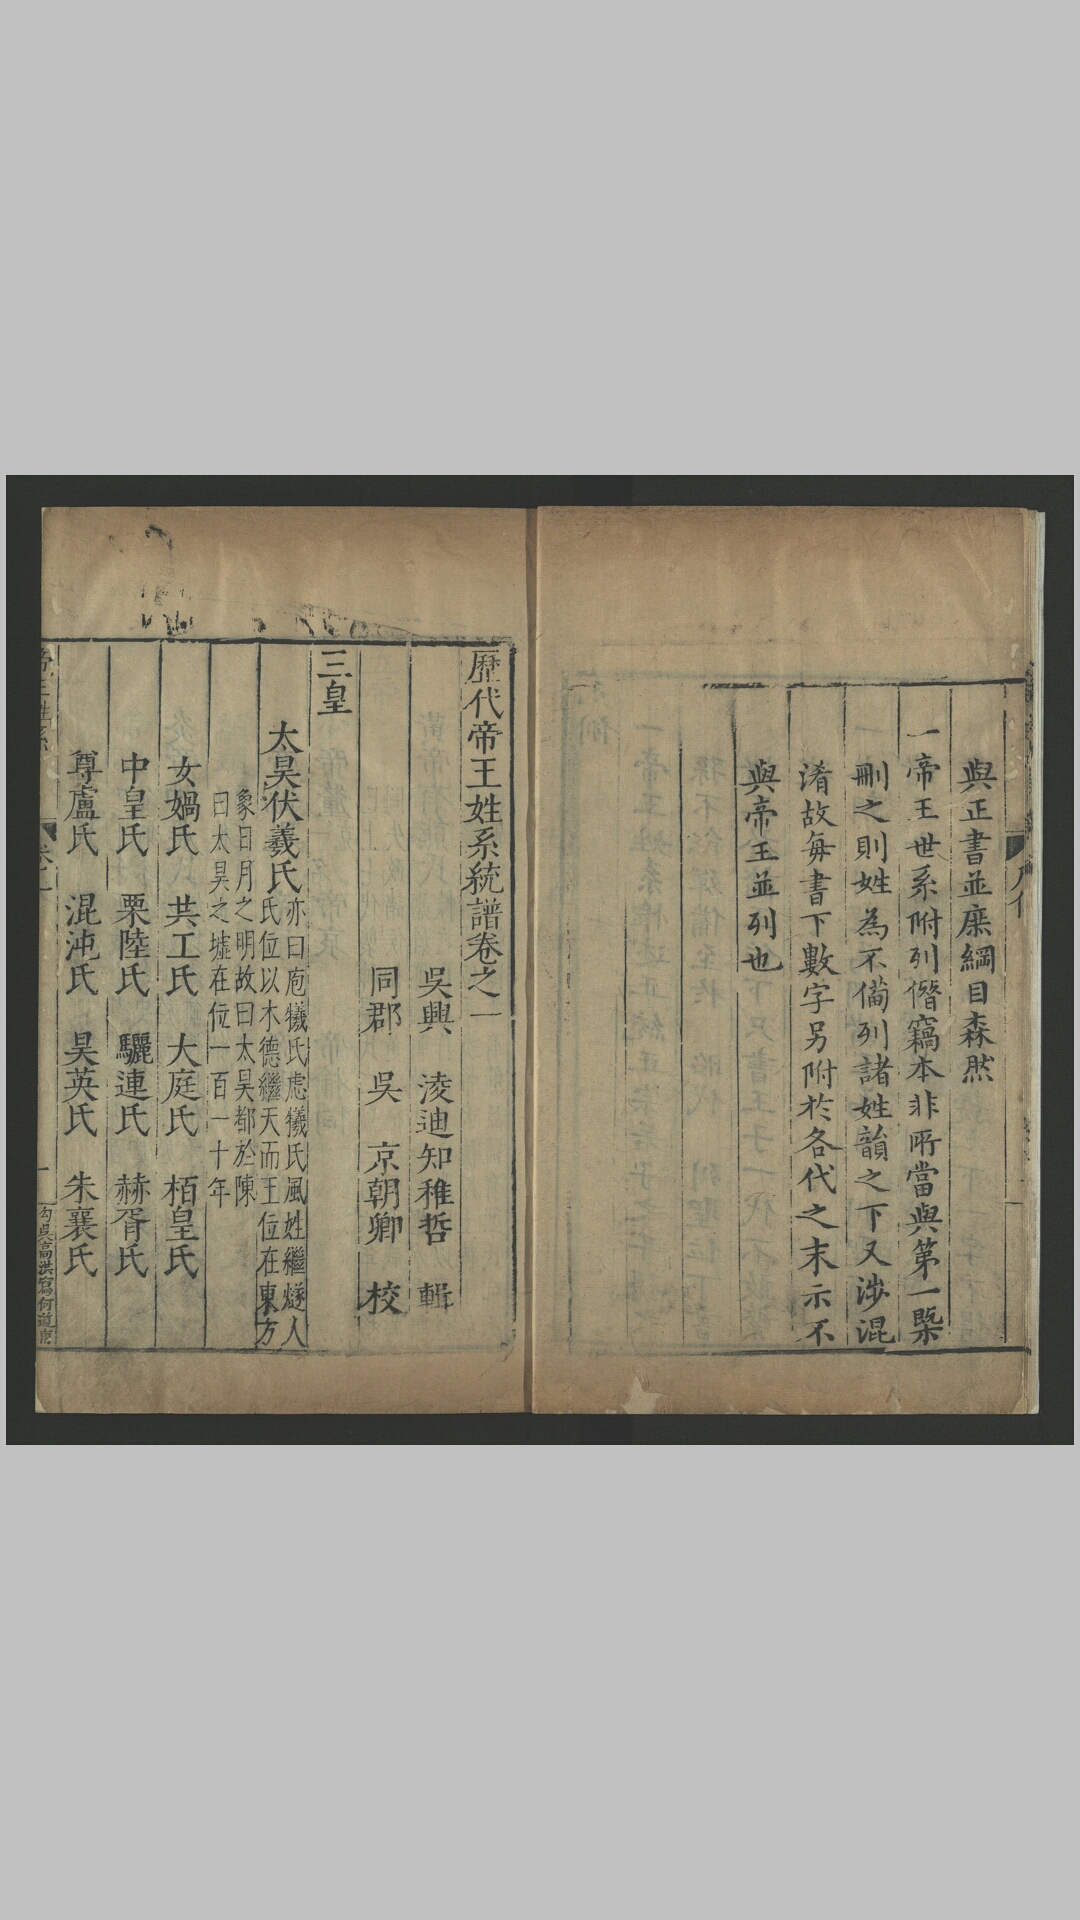 與正書並庶綱目森然
一帝王世系附列僭竊本非所當與第一槩
刪之則姓為不備列諸姓韻之下又涉混
淆故每書下數字另附於各代之末示不
與帝王並列也
歷代帝王姓系統譜卷之一
吳興 淩迪知稚哲 輯
同郡 吳 京朝卿 校
三皇
太昊伏羲氏
亦曰庖犧氏虙犧氏風姓繼燧人
氏位以木德繼天而王位在東方
象日月之明故曰太昊都於陳
曰太昊之墟在位一百一十年
女媧氏 共工氏 大庭氏 栢皇氏
中皇氏 栗陸氏 驪連氏 赫胥氏
尊盧氏 混沌氏 昊英氏 朱襄氏
帝王姓系 卷一 一 勾吳高洪寫何道